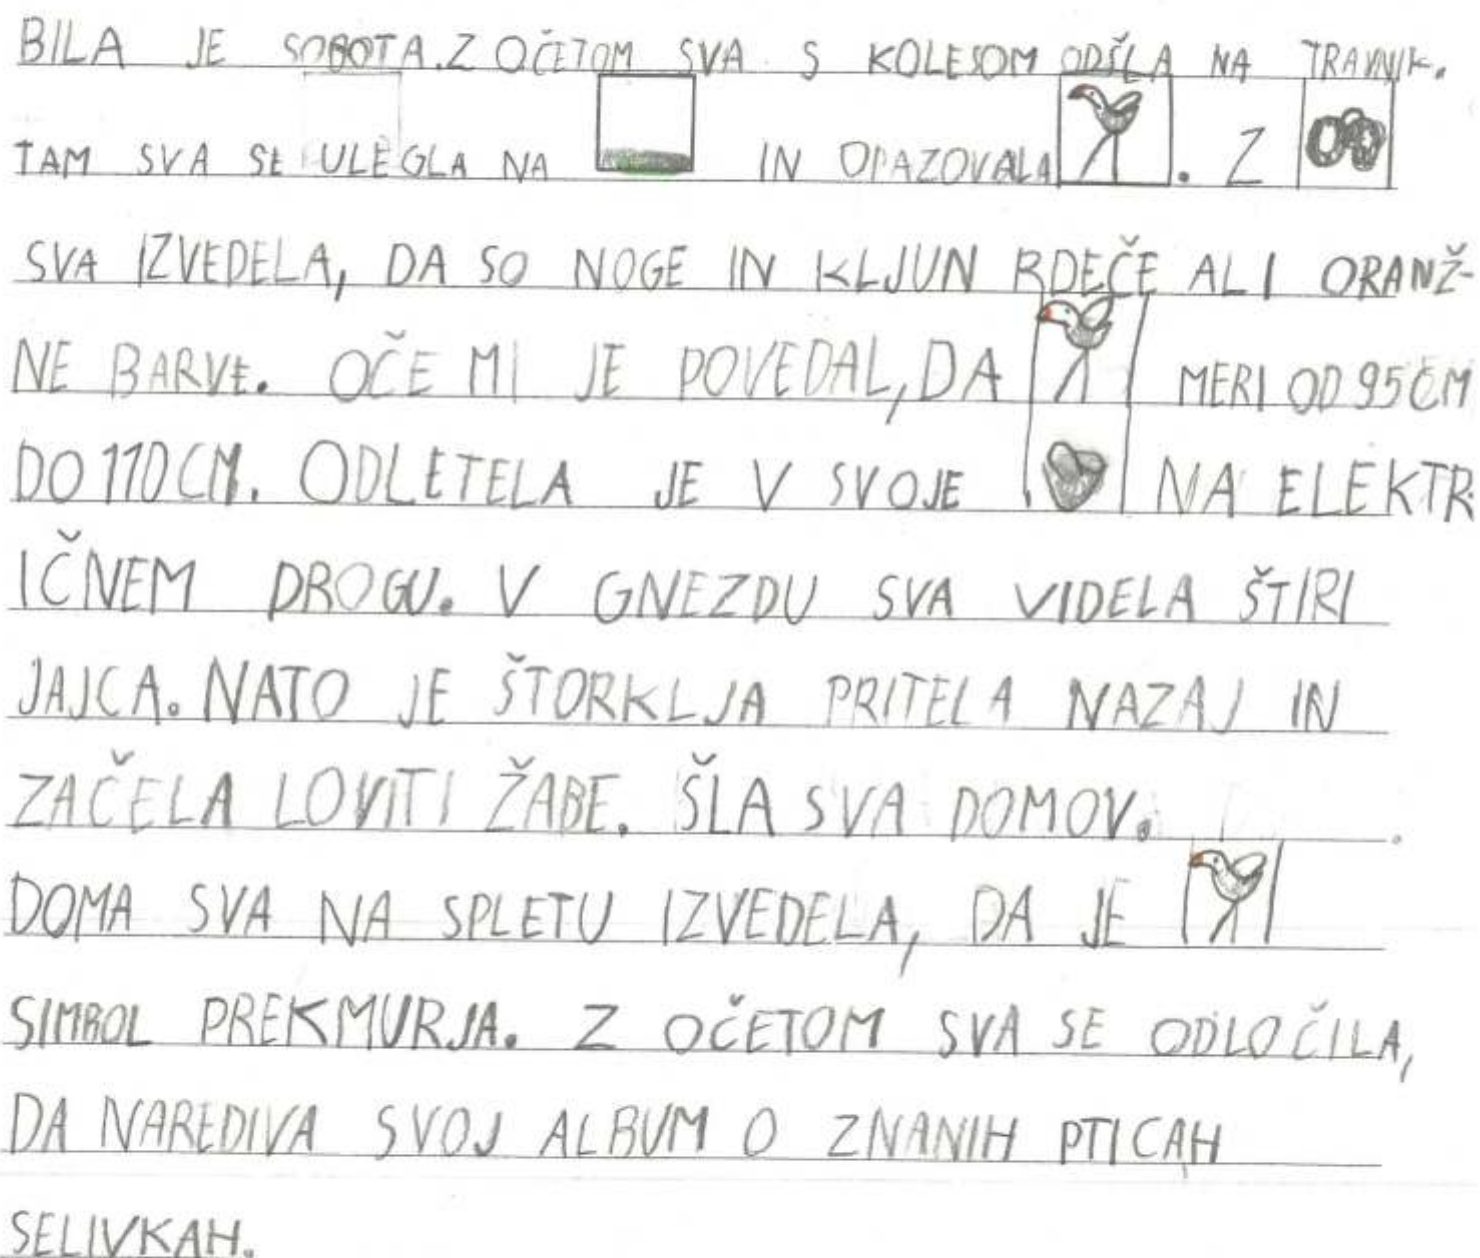 BILA JE SOBOTA. Z OČETOM SVA S KOLESOM ODŠLA NA TRAVNIK.
TAM SVA SE ULEGLA NA IN OPAZOVALA . Z
SVA IZVEDELA, DA SO NOGE IN KLJUN RDEČE ALI ORANŽ-
NE BARVE. OČE MI JE POVEDAL, DA MERI OD 95 CM
DO 110 CM. ODLETELA JE V SVOJE NA ELEKTR
IČNEM DROGU. V GNEZDU SVA VIDELA ŠTIRI
JAJCA. NATO JE ŠTORKLJA PRITELA NAZAJ IN
ZAČELA LOVITI ŽABE. ŠLA SVA DOMOV.
DOMA SVA NA SPLETU IZVEDELA, DA JE
SIMBOL PREKMURJA. Z OČETOM SVA SE ODLOČILA,
DA NAREDIVA SVOJ ALBUM O ZNANIH PTICAH
SELIVKAH.